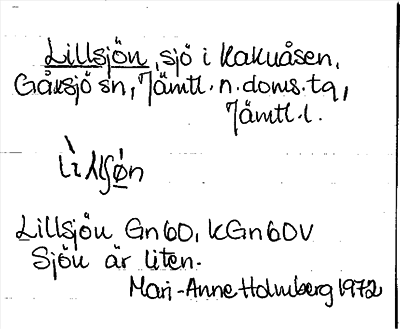 Lillsjön, sjö i Kakuåsen,
Gåxsjö sn, Jämtl. n. doms. tq,
Jämtl. l.
Lillsjön Gn60, kGn60V
Sjön är liten.
Mari-Anne Holmberg 1972